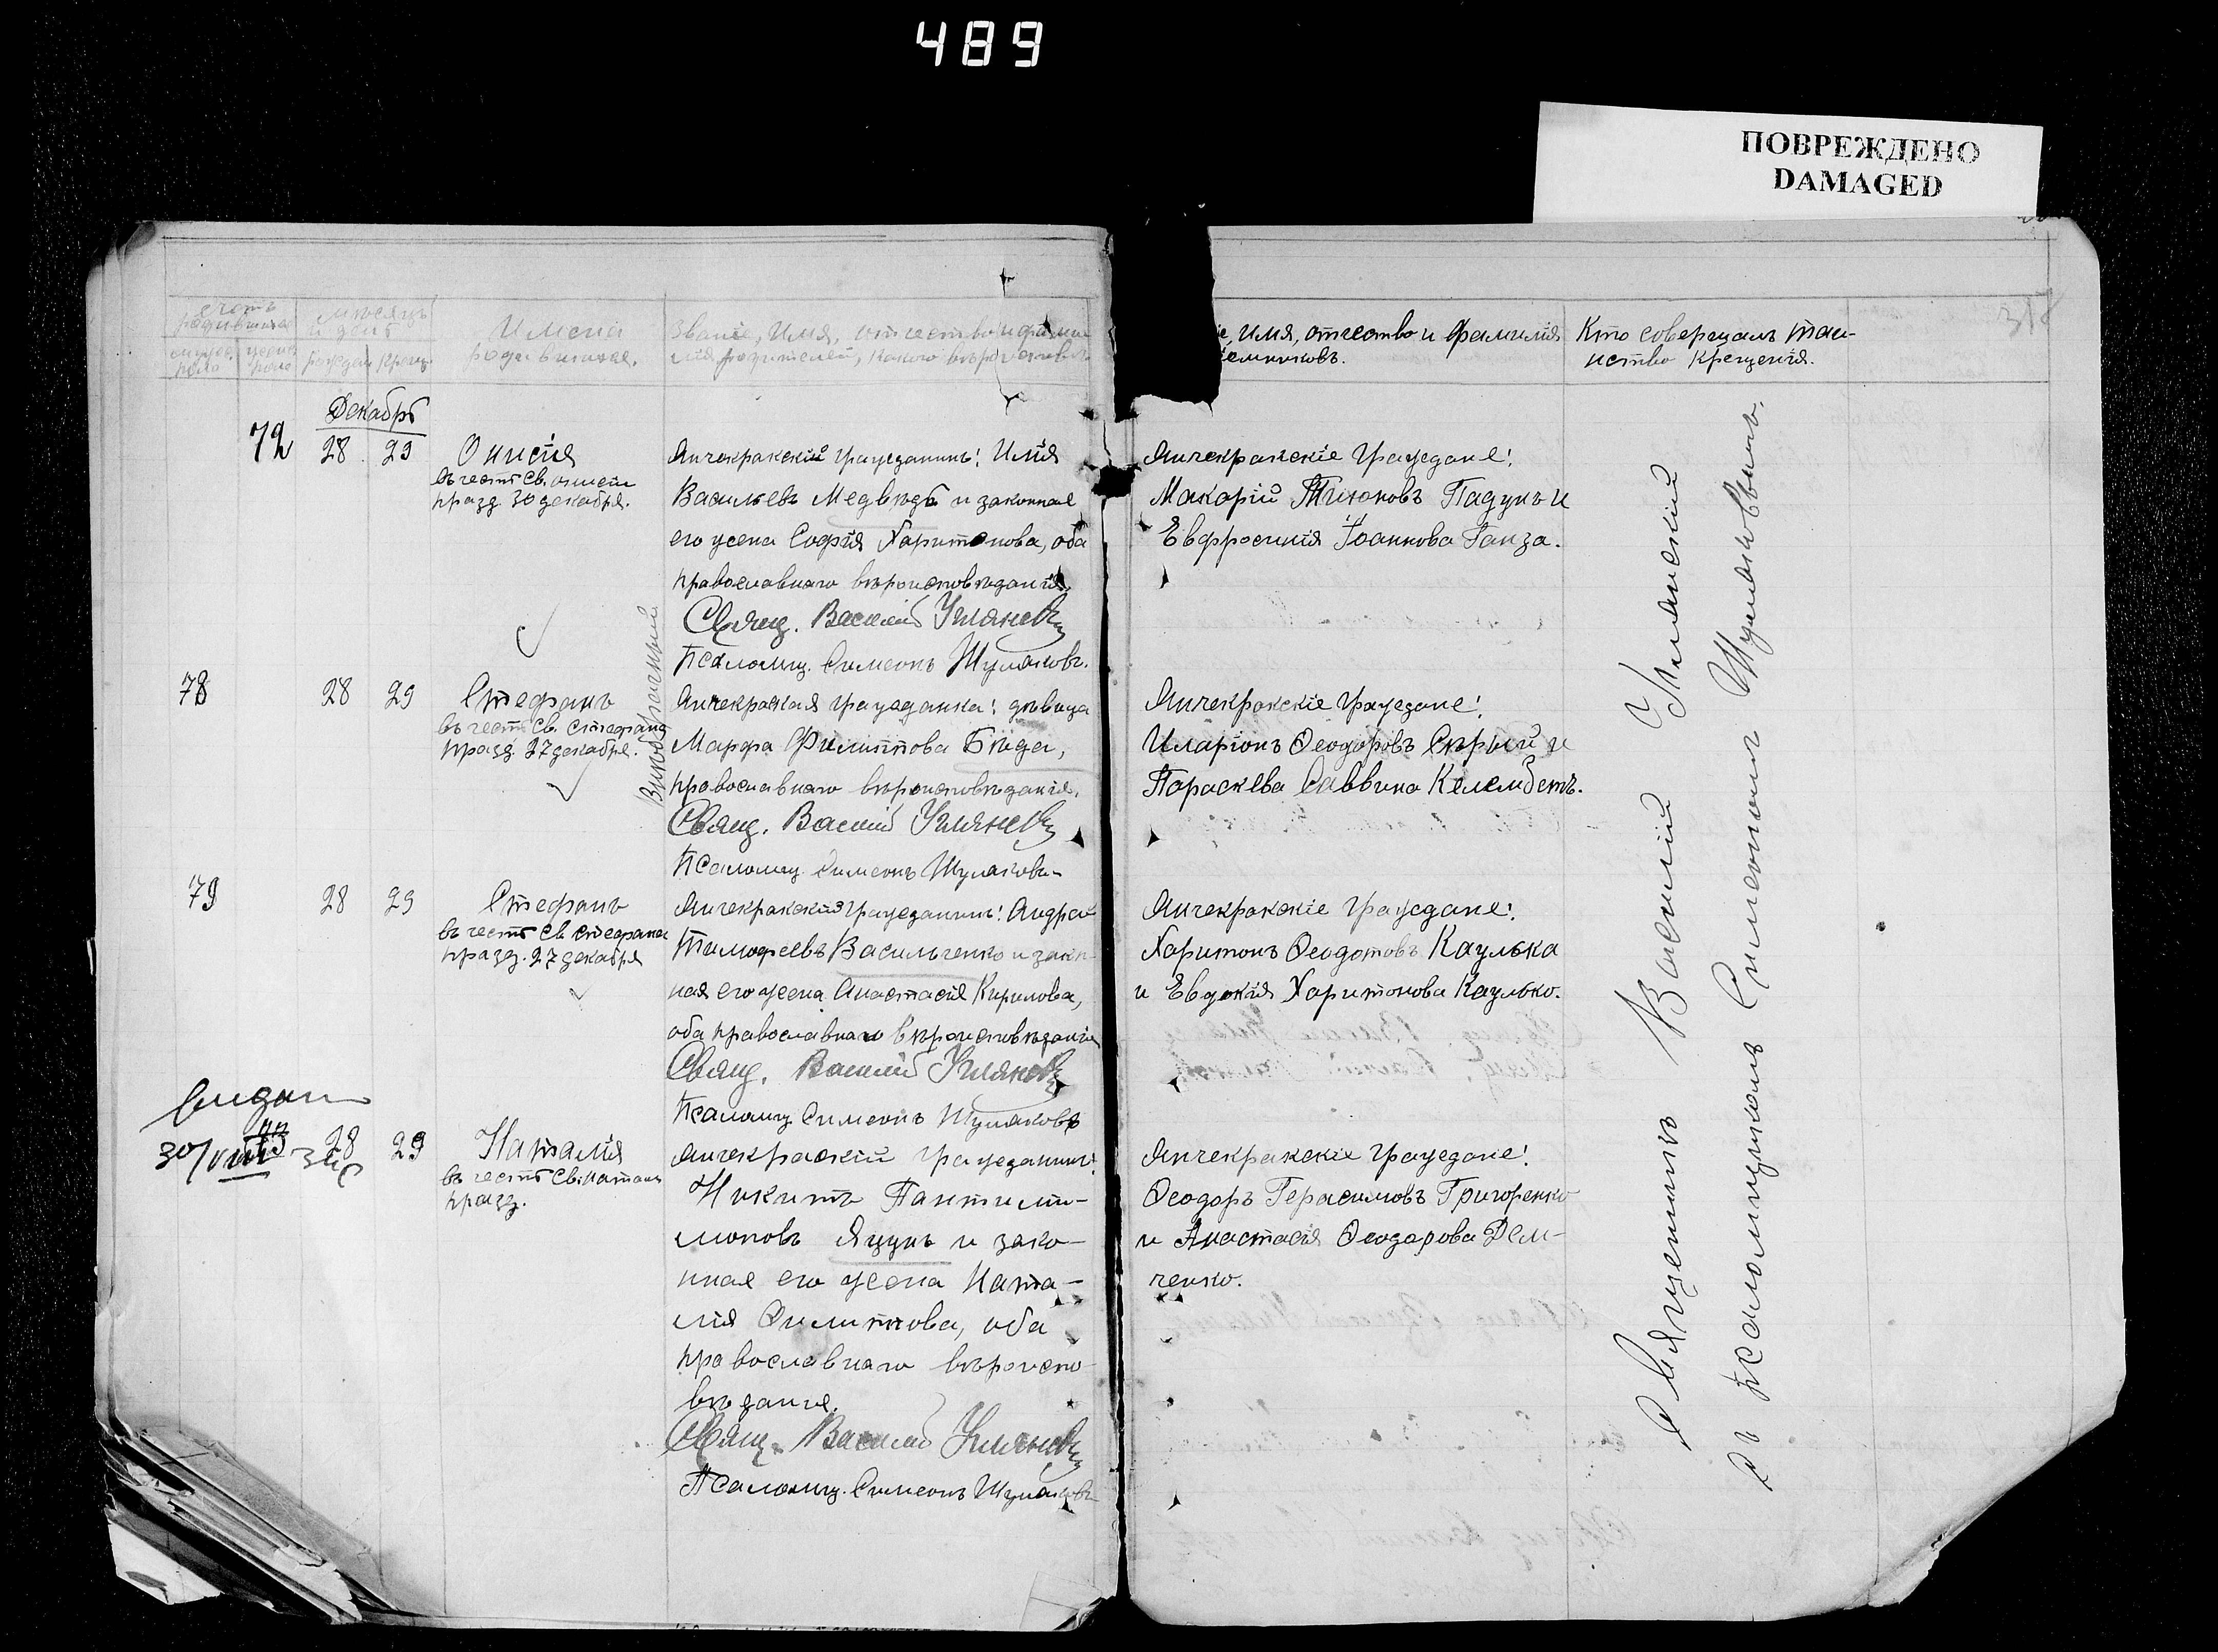 489
ПОВРЕЖДЕНО
DAMAGED
счотъ родившихся
мѣсяцъ и день
Имена родившихся.
Званіе, Имя, отчество и фамилія родителей, какого вѣроисповѣд.
рожден. крещ.
Имя, отчество и Фамилія
Кто совершалъ таинство крещенія.
318
Декабрь
72 28 29
Онисія
въ честь Св. онисіи
празд. 30 декабря.
Янчекракскій гражданинъ: Илія
Васильевъ Медвѣдь и законная
его жена Софія Харитонова, оба
православнаго вѣроисповѣданія.
Свящ. Василій Уманскій
Псаломщ. Симеонъ Шумаковъ.
Янчекракскіе Граждане:
Макарій Тихоновъ Падунъ и
Евфросинія Іоаннова Ганза.
78 28 29
Стефанъ
въ честь Св. Стефана
празд. 27 декабря.
Внебрачный
Янчекракская гражданка: дѣвица
Марфа Филиппова Бѣда,
православнаго вѣроисповѣданія.
Свящ. Василій Уманскій
Псаломщ. Симеонъ Шумаковъ
Янчекракскіе Граждане:
Иларіонъ Ѳеодоровъ Сѣрый и
Параскева Саввина Келембетъ.
79 28 29
Стефанъ
въ честь Св. Стефана
празд. 27 декабря
Янчекракскій гражданинъ: Андрей
Тимофеевъ Васильченко и закон-
ная его жена Анастасія Кирилова,
оба православнаго вѣроисповѣданія
Свящ. Василій Уманскій
Псаломщ. Симеонъ Шумаковъ
Янчекракскіе Граждане:
Харитонъ Ѳеодотовъ Каулька
и Евдокія Харитонова Каулько.
30/VIII
28 29
Наталія
въ честь Св. Наталіи
празд.
Янчекракскій гражданинъ:
Никита Пантили-
моновъ Яцунъ и зако-
нная его жена Ната-
лія Филиппова, оба
православнаго вѣроиспо-
вѣданія.
Свящ. Василій Уманскій
Псаломщ. Симеонъ Шумаковъ
Янчекракскіе Граждане:
Ѳеодоръ Герасимовъ Григоренко
и Анастасія Ѳеодорова Дем-
ченко.
Священникъ Василій Уманскій
съ псаломщикомъ Симеономъ Шумаковымъ.